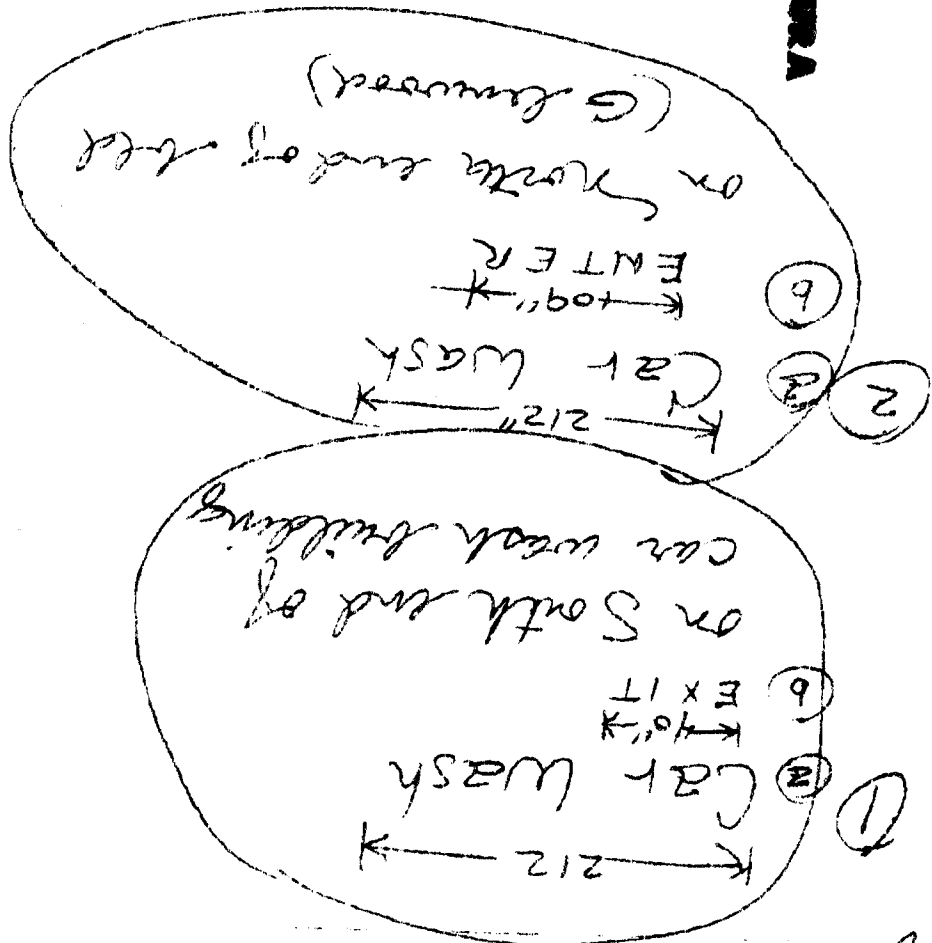 1
212
a Car Wash
40"
b EXIT
on South end of
car wash building
2
212"
a Car Wash
60"
b ENTER
on North end of bld
(Glenwood)
URA